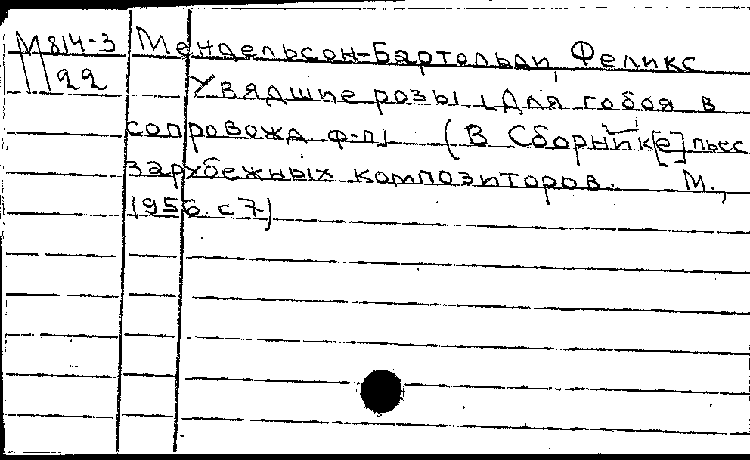 М814-3 Мендельсон-Бартольди, Феликс
1122 Увядшие розы [Для гобоя в
сопровожд. ф-п] (В Сборник[е] пьес
зарубежных композиторов. М.,
1956. с 7)